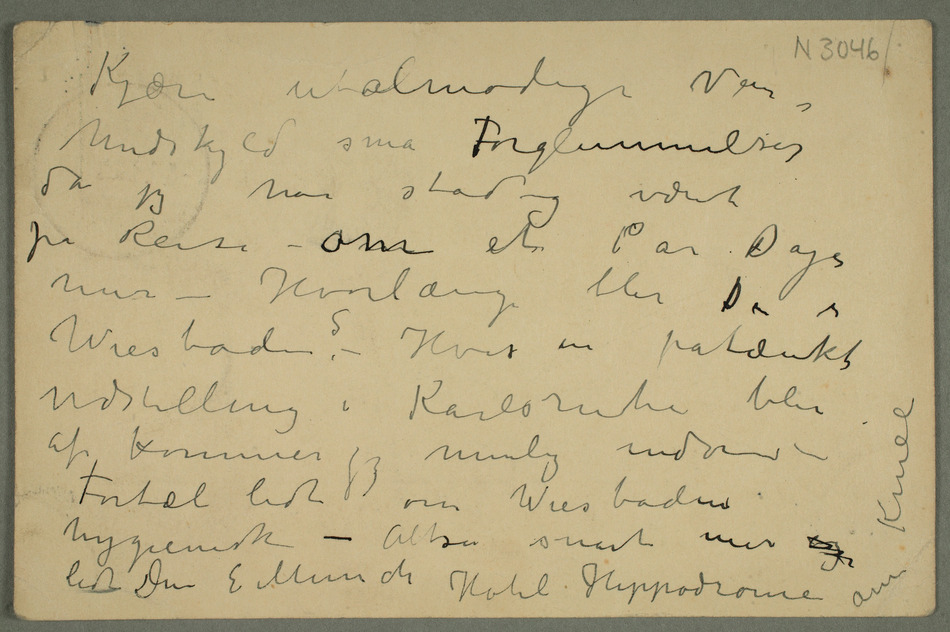 N 3046
Kjære utålmodige Ven,
Undskyld små Forglemmelser
da jeg har stadig vært
på Reise – om et Par Dage
mer – Hvorlænge blir De i
Wiesbaden? – Hvis en påtænkt
udstilling i Karlsruhe blir
af kommer jeg mulig indom –
Fortæl lidt om Wiesbaden
hygienisk – Altså snart mer
lidt Din E Munch Hotel Hippodrome
am Knie